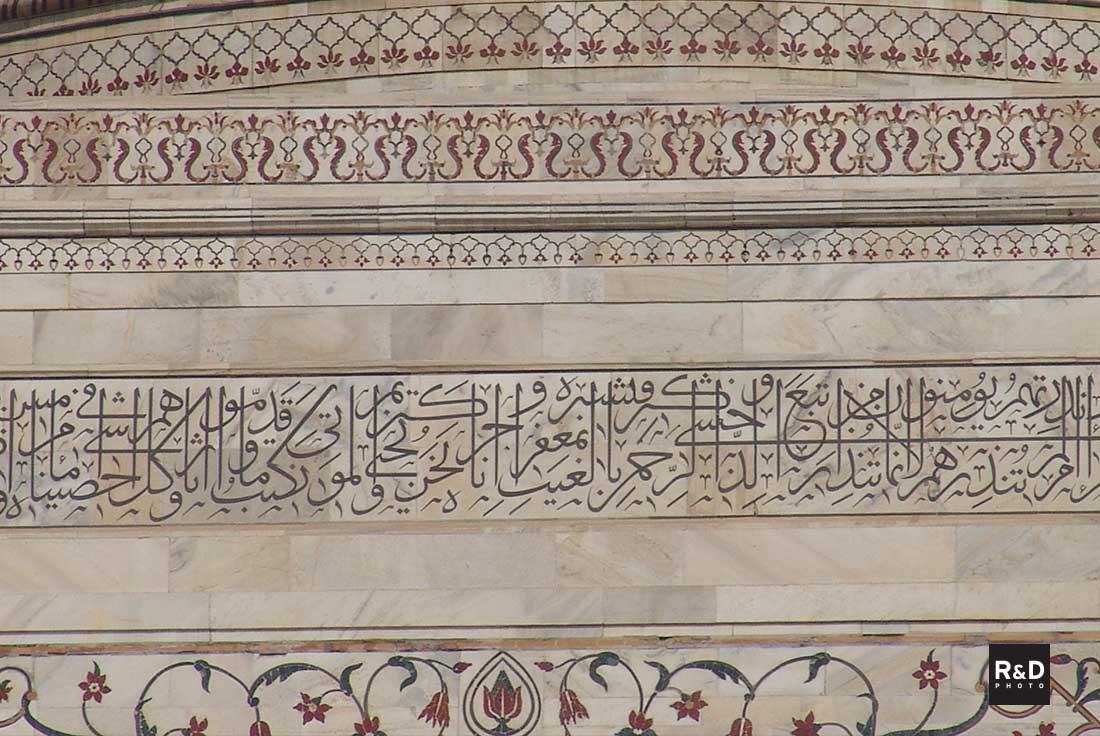 ءَأَنذَرْتَهُمْ أَمْ لَمْ تُنذِرْهُمْ لَا يُؤْمِنُونَ إِنَّمَا تُنذِرُ مَنِ اتَّبَعَ الذِّكْرَ وَخَشِيَ الرَّحْمٰنَ بِالْغَيْبِ فَبَشِّرْهُ بِمَغْفِرَةٍ وَأَجْرٍ كَرِيمٍ إِنَّا نَحْنُ نُحْيِي الْمَوْتَىٰ وَنَكْتُبُ مَا قَدَّمُوا وَآثَارَهُمْ وَكُلَّ شَيْءٍ أَحْصَيْنَاهُ فِي إِمَامٍ مُبِينٍ
R&D
PHOTO